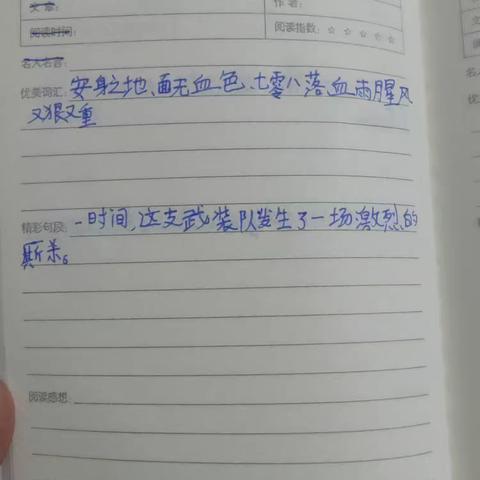 文 章: 作 者:
阅读时间: 阅读指数: ☆ ☆ ☆ ☆ ☆
名人名言:
优美词汇: 安身之地、面无血色、七零八落血雨腥风
又狠又重
精彩句段: 一时间,这支武装队发生了一场激烈的
厮杀。
阅读感想: